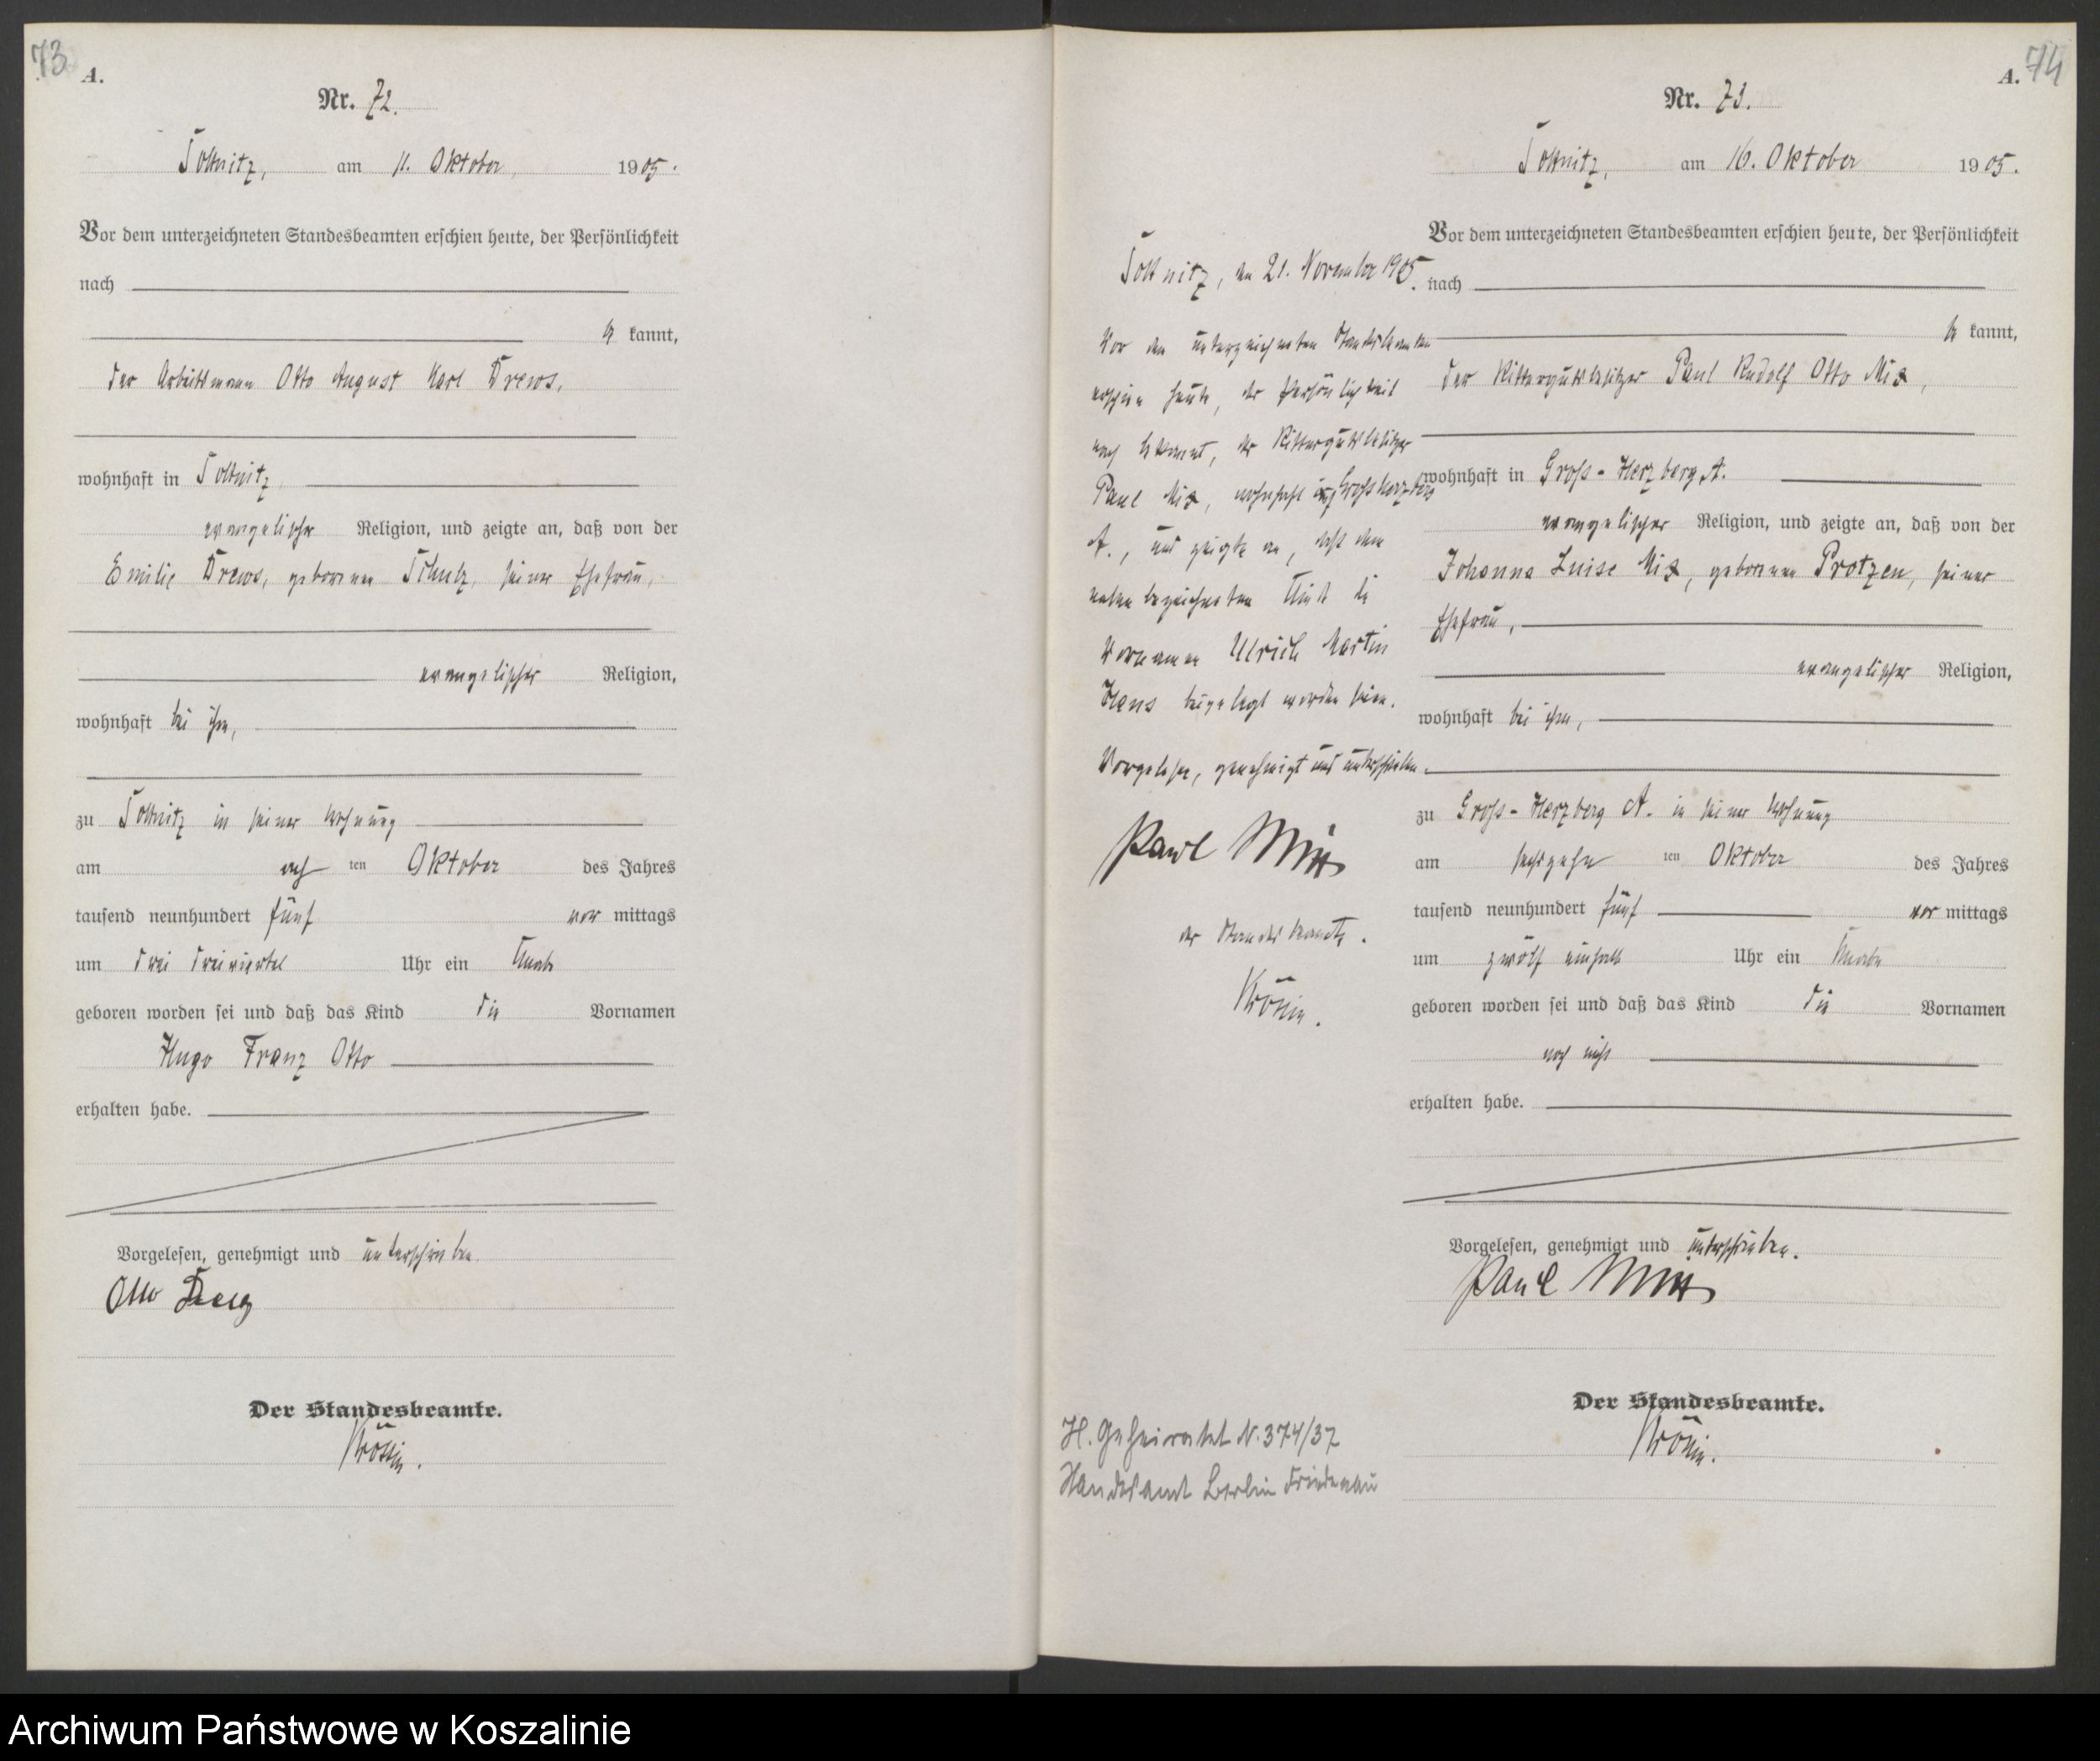 73
A.
Nr. 72.
Soltnitz, am 11. Oktober 1905.
Vor dem unterzeichneten Standesbeamten erschien heute, der Persönlichkeit
nach
be kannt,
der Arbeitsmann Otto August Karl Drews,
wohnhaft in Soltnitz,
evangelischer Religion, und zeigte an, daß von der
Emilie Drews, geborenen Schulz, seiner Ehefrau,
evangelischer Religion,
wohnhaft bei ihm,
zu Soltnitz in seiner Wohnung
am ach ten Oktober des Jahres
tausend neunhundert fünf vor mittags
um drei dreiviertel Uhr ein Knabe
geboren worden sei und daß das Kind die Vornamen
Hugo Franz Otto
erhalten habe.
Vorgelesen, genehmigt und unterschrieben.
Otto Drews
Der Standesbeamte.
Krönin.
A. 74
Nr. 73.
Soltnitz, am 16. Oktober 1905.
Vor dem unterzeichneten Standesbeamten erschien heute, der Persönlichkeit
nach
be kannt,
der Rittergutsbesitzer Paul Rudolf Otto Mix,
wohnhaft in Gross-Herzberg A.
evangelischer Religion, und zeigte an, daß von der
Johanna Luise Mix, geborenen Protzen, seiner
Ehefrau,
evangelischer Religion,
wohnhaft bei ihm,
zu Gross-Herzberg A. in seiner Wohnung
am sechszehn ten Oktober des Jahres
tausend neunhundert fünf vor mittags
um zwölf einhalb Uhr ein Knabe
geboren worden sei und daß das Kind die Vornamen
noch nicht
erhalten habe.
Vorgelesen, genehmigt und unterschrieben.
Paul Mix
Der Standesbeamte.
Krönin.
Soltnitz, den 21. November 1905.
Vor dem unterzeichneten Standesbeamten
erschien heute, der Persönlichkeit
nach bekannt, der Rittergutsbesitzer
Paul Mix, wohnhaft in Gross Herzberg
A., und zeigte an, dass dem
neben bezeichneten Kinde die
Vornamen Ulrich Martin
Hans beigelegt worden seien.
Vorgelesen, genehmigt und unterschrieben.
Paul Mix
Der Standesbeamte.
Krönin.
H. Geheiratet N. 374/37
Standesamt Berlin Friedenau
Archiwum Państwowe w Koszalinie